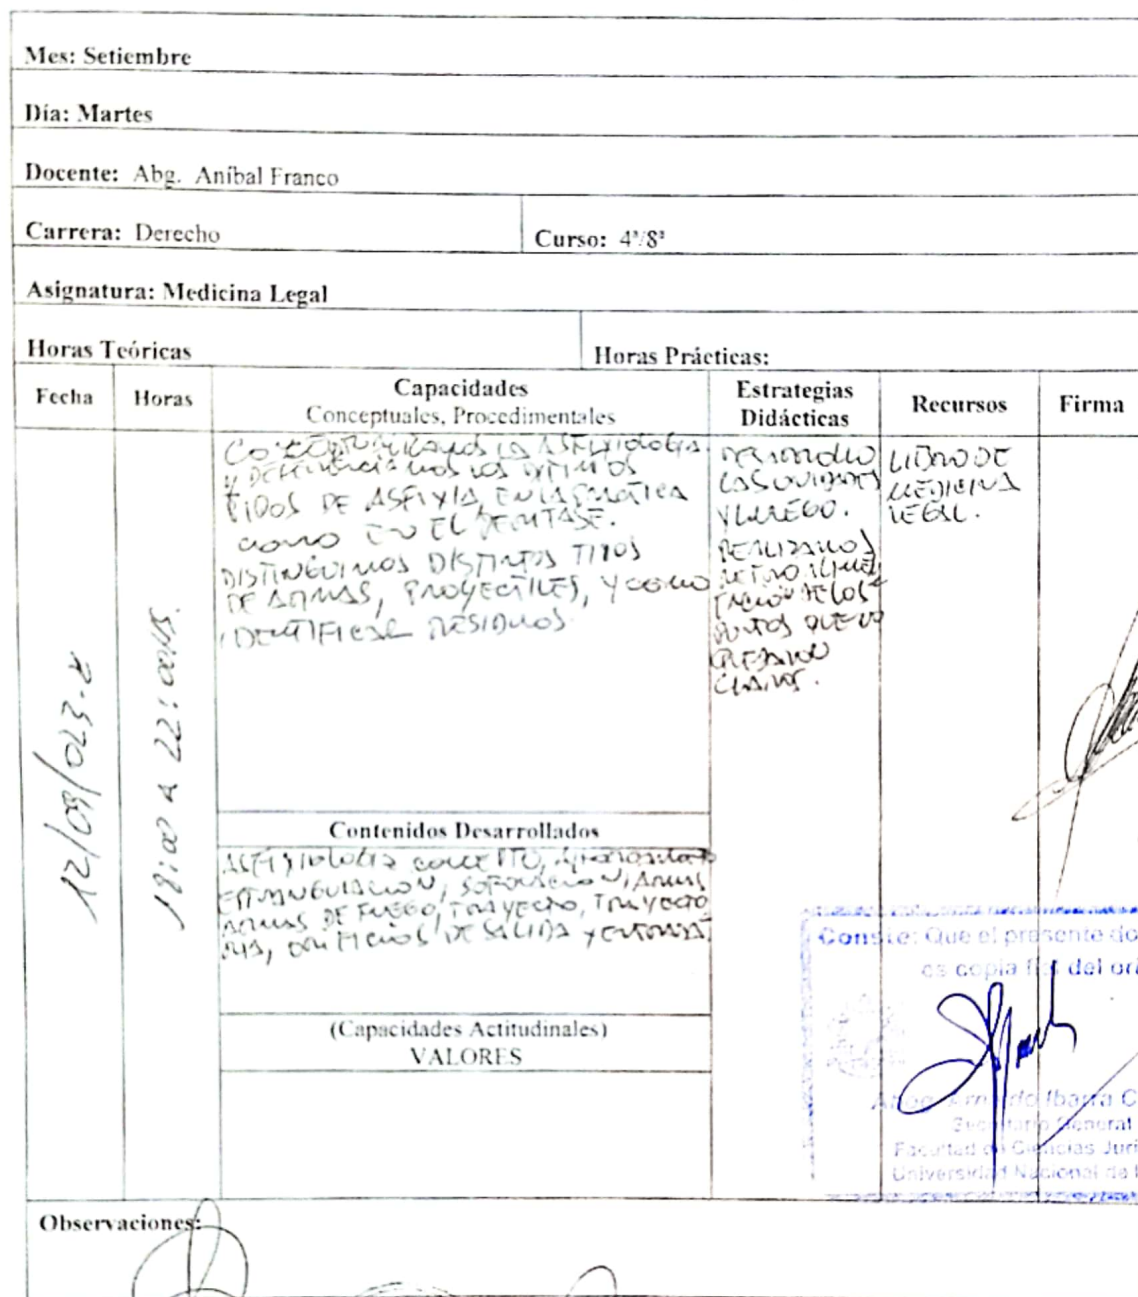 Mes: Setiembre
Día: Martes
Docente: Abg. Aníbal Franco
Carrera: Derecho
Curso: 4ª/8ª
Asignatura: Medicina Legal
Horas Teóricas
Horas Prácticas:
Fecha
Horas
Capacidades
Conceptuales, Procedimentales
Estrategias
Didácticas
Recursos
Firma
12/09/023.-
18:00 A 22:00hs.
LA ASFIXIOLOGIA
Y DIFERENCIAMOS LOS DISTINTOS
TIPOS DE ASFIXIA, EN LA PRÁTICA
COMO EN EL
DISTINGUIMOS DISTINTOS TIPOS
DE ARMAS, PROYECTILES, Y COMO
IDENTIFICAR RESIDUOS.
DESARROLLO
LAS UNIDADES
Y LUEGO.
REALIZAMOS
RETROALIMEN
TACION DE LOS
PUNTOS QUE NO
QUEDARON
CLAROS.
LIBRO DE
MEDICINA
LEGAL.
Contenidos Desarrollados
ASFIXIOLOGIA CONCEPTO,
ESTRANGULACION, SOFOCACION, ARMAS
ARMAS DE FUEGO, TRAYECTO, TRAYECTO
RIA, ORIFICIOS DE SALIDA Y ENTRADA.
(Capacidades Actitudinales)
VALORES
Conste: Que el presente do
es copia fiel del ori
Ibarra C
Secretario General
Facultad de Ciencias Jurí
Universidad Nacional de
Observaciones: